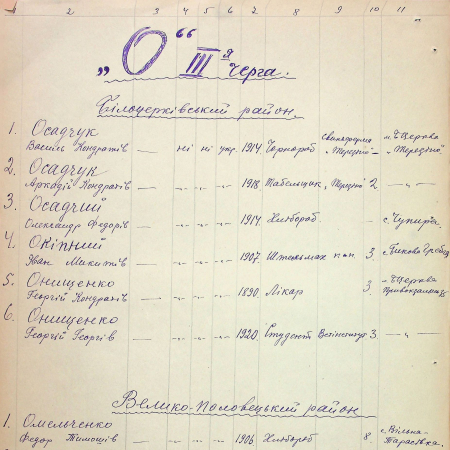 1 2 3 4 5 6 7 8 9 10 11
„О“ III я черга.
Білоцерківський район.
1. Осадчук
Василь Кондратів — ні ні укр. 1914. Чорнороб — м. Б Церква „Терезіно“
2. Осадчук
Аркадій Кондратів — -„- -„- -„- 1918 Табельщик, Терезіно 2 —„—
3. Осадчий
Олександр Федорів — -„- -„- -„- 1914. Хлібороб. — с. Чупира.
4. Окіпний
Іван Микитів — -„- -„- -„- 1907. Штельмах 3.
5. Онищенко
Георгій Кондратів — -„- -„- -„- 1890. Лікар 3 м. Б Церква
6. Онищенко
Георгій Георгів — -„- -„- -„- 1920. Студент 3 —„—
Велико-Половецький район
1. Омельченко
Федор Тимошів — -„- -„- -„- 1906. Хлібороб 8 с. Вільна-Тарасівка.